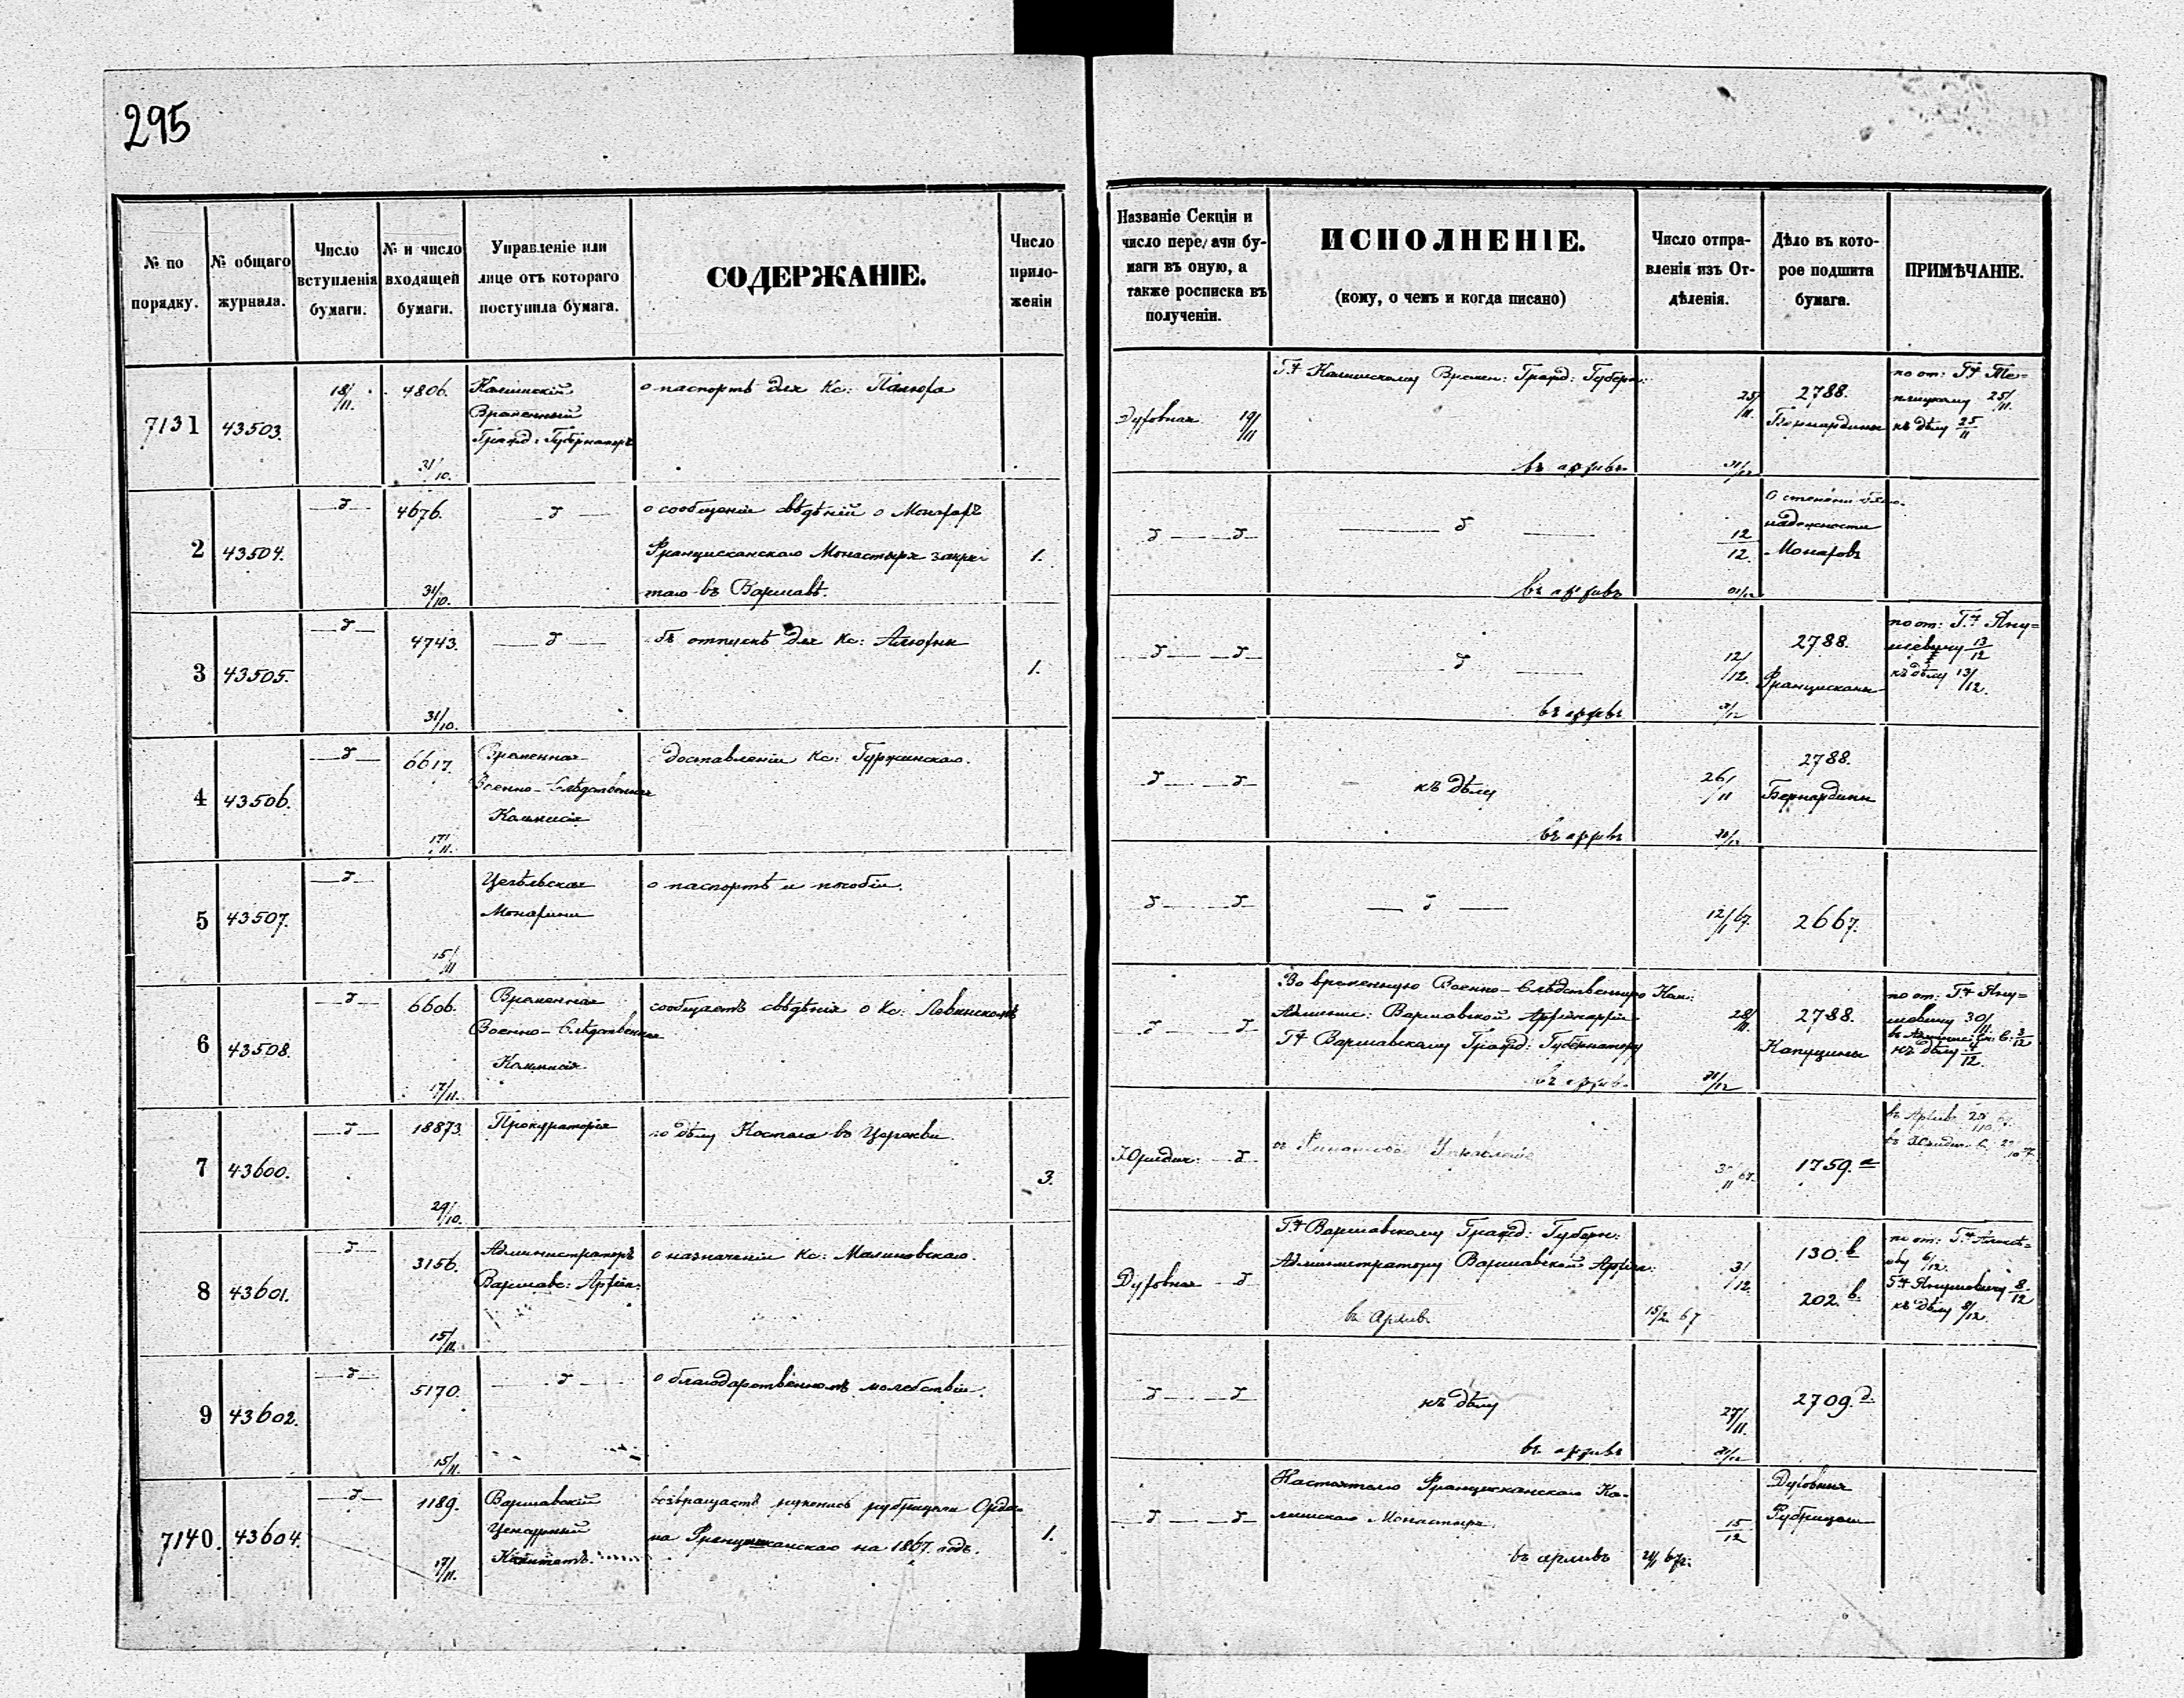 295
№ по порядку.
№ общаго журнала.
Число вступленія бумаги.
№ и число входящей бумаги.
Управленіе или лице отъ котораго поступила бумага.
СОДЕРЖАНІЕ.
Число приложеній
Названіе Секціи и число передачи бумаги въ оную, а также росписка въ полученіи.
ИСПОЛНЕНІЕ.
(кому, о чемъ и когда писано)
Число отправленія изъ Отдѣленія.
Дѣло въ которое подшита бумага.
ПРИМѢЧАНІЕ.
7131
43503.
18/11.
4806.
31/10.
Калишскій
Временный
Гражд: Губернаторъ
о паспортѣ для Кс:
Духовная 19/11
Г. Калишскому Времен: Гражд: Губерн:
въ архивъ
25/11.
31/12
2788.
Бернардины
по от: Г.
25/11.
къ дѣлу 25/11
2
43504.
4676.
31/10.
о сообщеніи свѣдѣній о Монахахъ
Францисканскаго Монастыря закры
таго въ Варшавѣ.
1.
въ архивъ
12/12
31/12
О степени благо-
надежности
Монаховъ
3
43505.
4743.
31/10.
объ отпускѣ для Кс:
1.
въ архивъ
12/12.
31/12
2788.
Францискане
по от: Г. Яну=
шевичу 13/12
къ дѣлу 13/12.
4
43506.
6617.
17/11.
Временная
Военно-Слѣдственная
Комисія
о доставленіи Кс: Гуржинскаго.
къ дѣлу
въ архивъ
26/11
31/12
2788.
Бернардины
5
43507.
15/11
Монахини
о паспортѣ и пособіи.
12/1 67.
2667.
6
43508.
6606.
17/11.
Временная
Военно-Слѣдственная
Комисія
сообщаетъ свѣдѣнія о Кс: Левинскомъ
Во временную Военно-Слѣдственную Ком:
Админис: Варшавской Архіепархіи
Г. Варшавскому Гражд: Губернатору
въ архив.
28/11
31/12
2788.
Капуцины
по от: Г. Яну=
шевичу 30/11
къ дѣлу 4/12.
7
43600.
18873.
29/10.
Прокураторія
по дѣлу Костела въ Церекви.
3.
Юридич.
1759. а
8
43601.
3156.
15/11.
Администраторъ
Варшавс: Архіеп:
о назначеніи Кс: Малиновскаго.
Духовная
Г. Варшавскому Гражд: Губерн:
Администратору Варшавской Архіеп:
въ Архив.
3/12.
15/2 67
130. в
202. в.
по от: Г.
6/12.
Г. Янушевичу 8/12
къ дѣлу 8/12.
9
43602.
5170.
15/11.
о благодарственномъ молебствіи.
къ дѣлу
въ архивъ
27/11.
31/12
2709. д.
7140.
43604.
1189.
17/11.
Варшавскій
Ценсурный
Комитетъ.
возвращаетъ рукопись рубрицели Орде-
на Францисканскаго на 1867. годъ.
1.
Настоятелю Францисканскаго Ка-
лишскаго Монастыря.
въ архивъ
15/12
Духовныя
Рубрицели